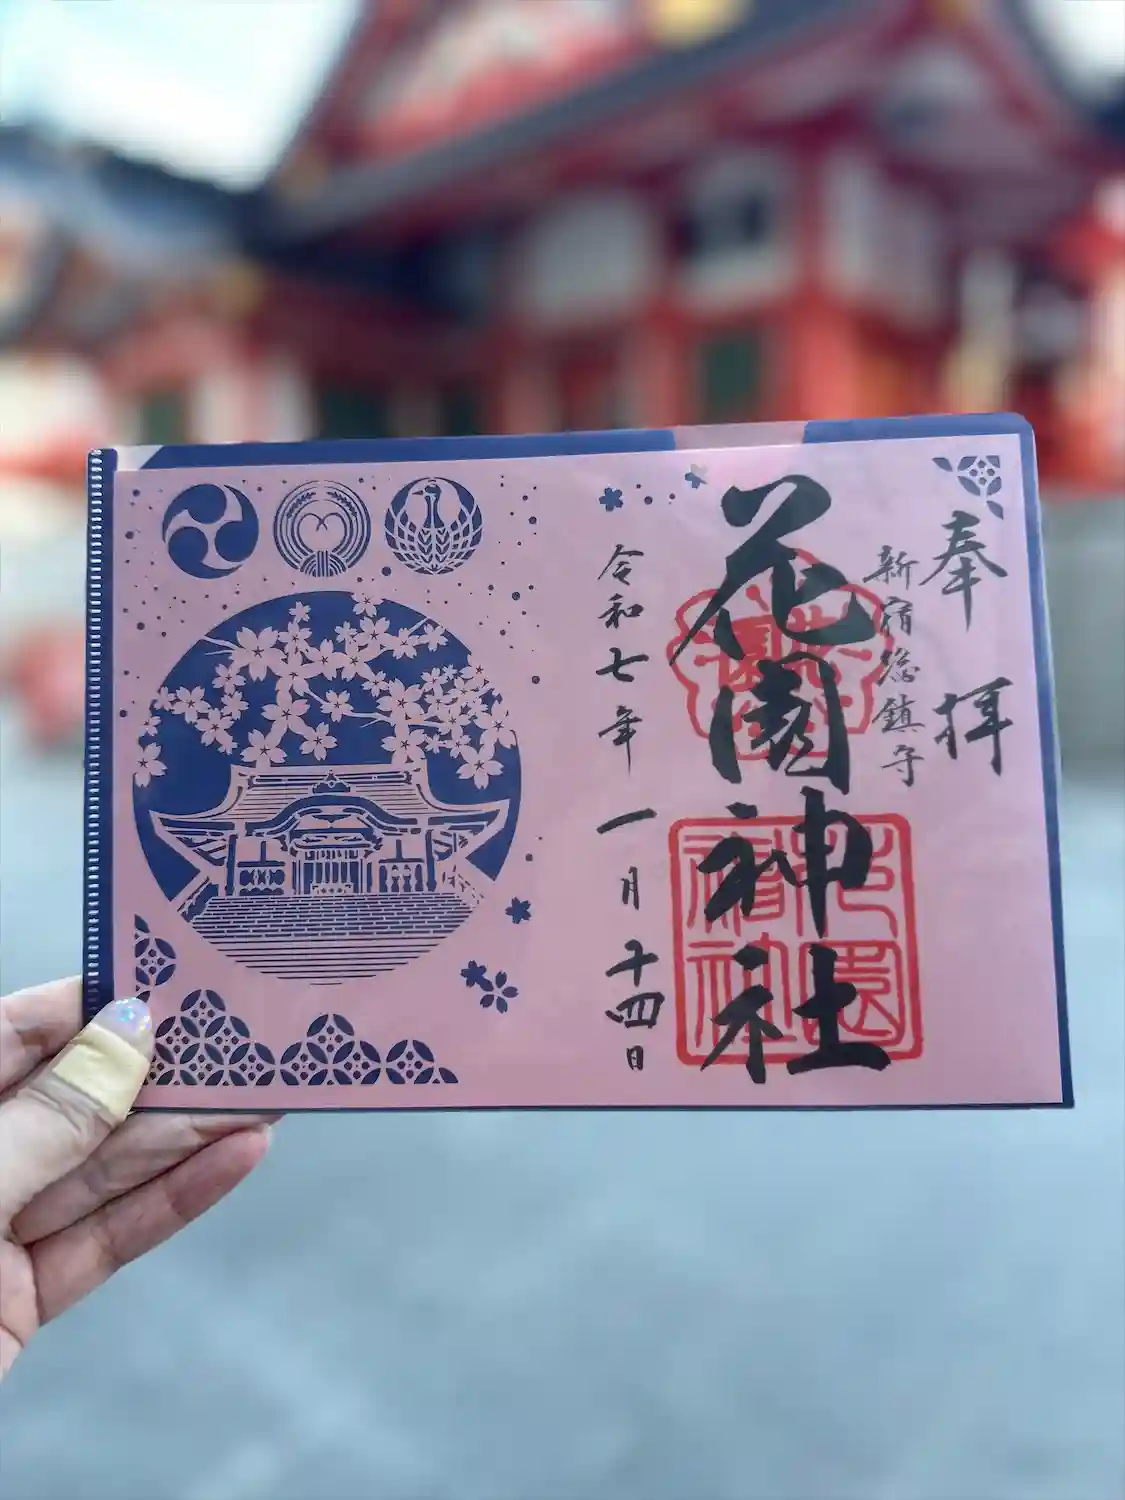 奉拝
新宿総鎮守
花園神社
令和七年一月十四日